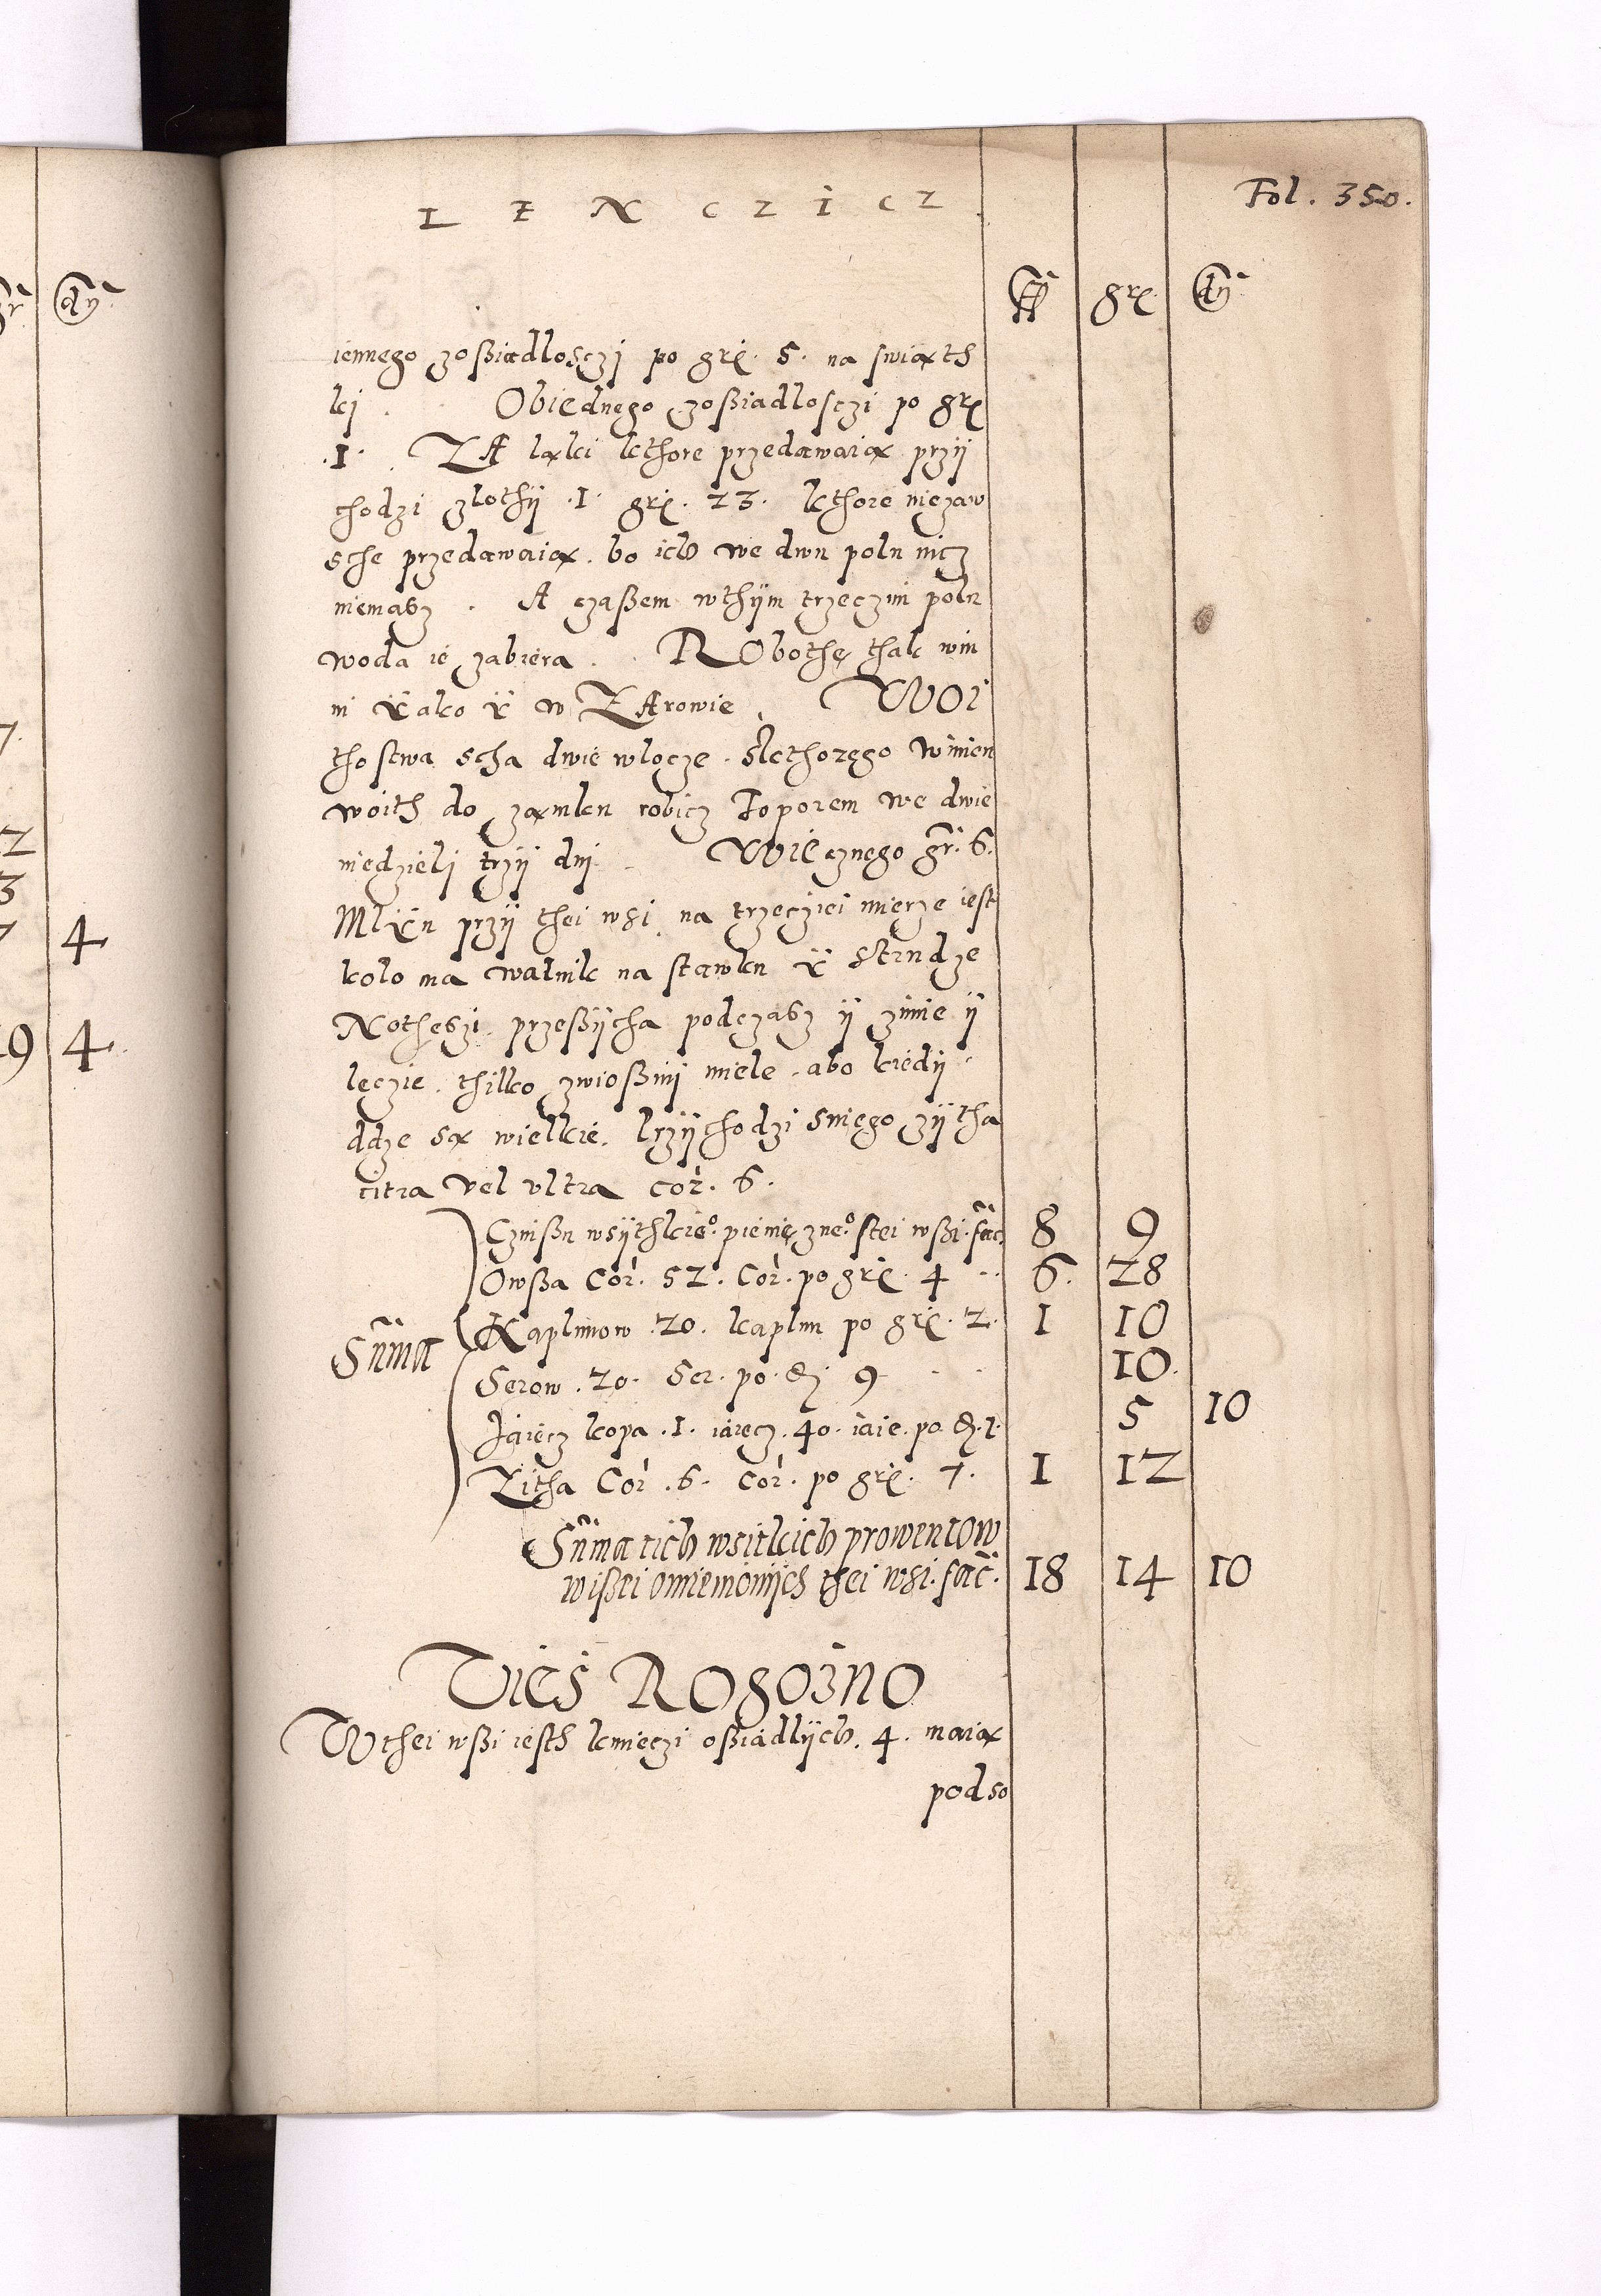 LENCZICZ
Fol. 350.
fl grĩ dñ
iennego zoßiadlosczj po grĩ. 5. na swiąth
kj. Obiednego zoßiadlosczi po grĩ
.1. ZA ląki kthore przedawaią przÿ
chodzi zlothÿ .1. grĩ. 23. kthore niezaw
sche przedawaią. bo ich we dwu polu nicz
niemasz. A czaßem wthÿm trzeczim polu
woda ie zabiera. RObothę thak win
ni Ÿako Ÿ w ZArowie. WOi
thostwa scha dwie wlocze. Skthorego winien
woith do zamku robicz Toporem we dwie
niedzieli trzÿ dnj. WIEcznego gr. 6.
MlÿN przÿ thei wsi na trzecziei mierze iest
kolo ma walnik na stawku Ÿ Strudze
Notheszi. przeßÿcha podczasz ÿ zimie ÿ
leczie. thilko zwioßnj miele. abo kiedÿ
ddze są wielkie. Przÿchodzi sniego zÿtha
citra vel ultra cor. 6.
Czinßu wsÿthkieo. pienięzneo. stei wßi. fac. 8 9
Owßa Cor. 52. Cor. po grĩ. 4 6. 28
Summa
Kaplunow .20. kaplun po grĩ. 2. 1 10
Serow .20. Ser. po. d. 9 10.
Jaiecz kopa .1. iaiecz. 40. iaie. po. d. 1. 5 10
Zitha Cor .6. cor. po grĩ. 7. 1 12
Summa tich wsitkich prowentow
wißei omienionÿch thei wsi. fac. 18 14 10
Vies ROgoznO
Wthei wßi iesth kmieczi oßiadlÿch. 4. maią
podso
7.
2
3
7 4
19 4.
gr dñ